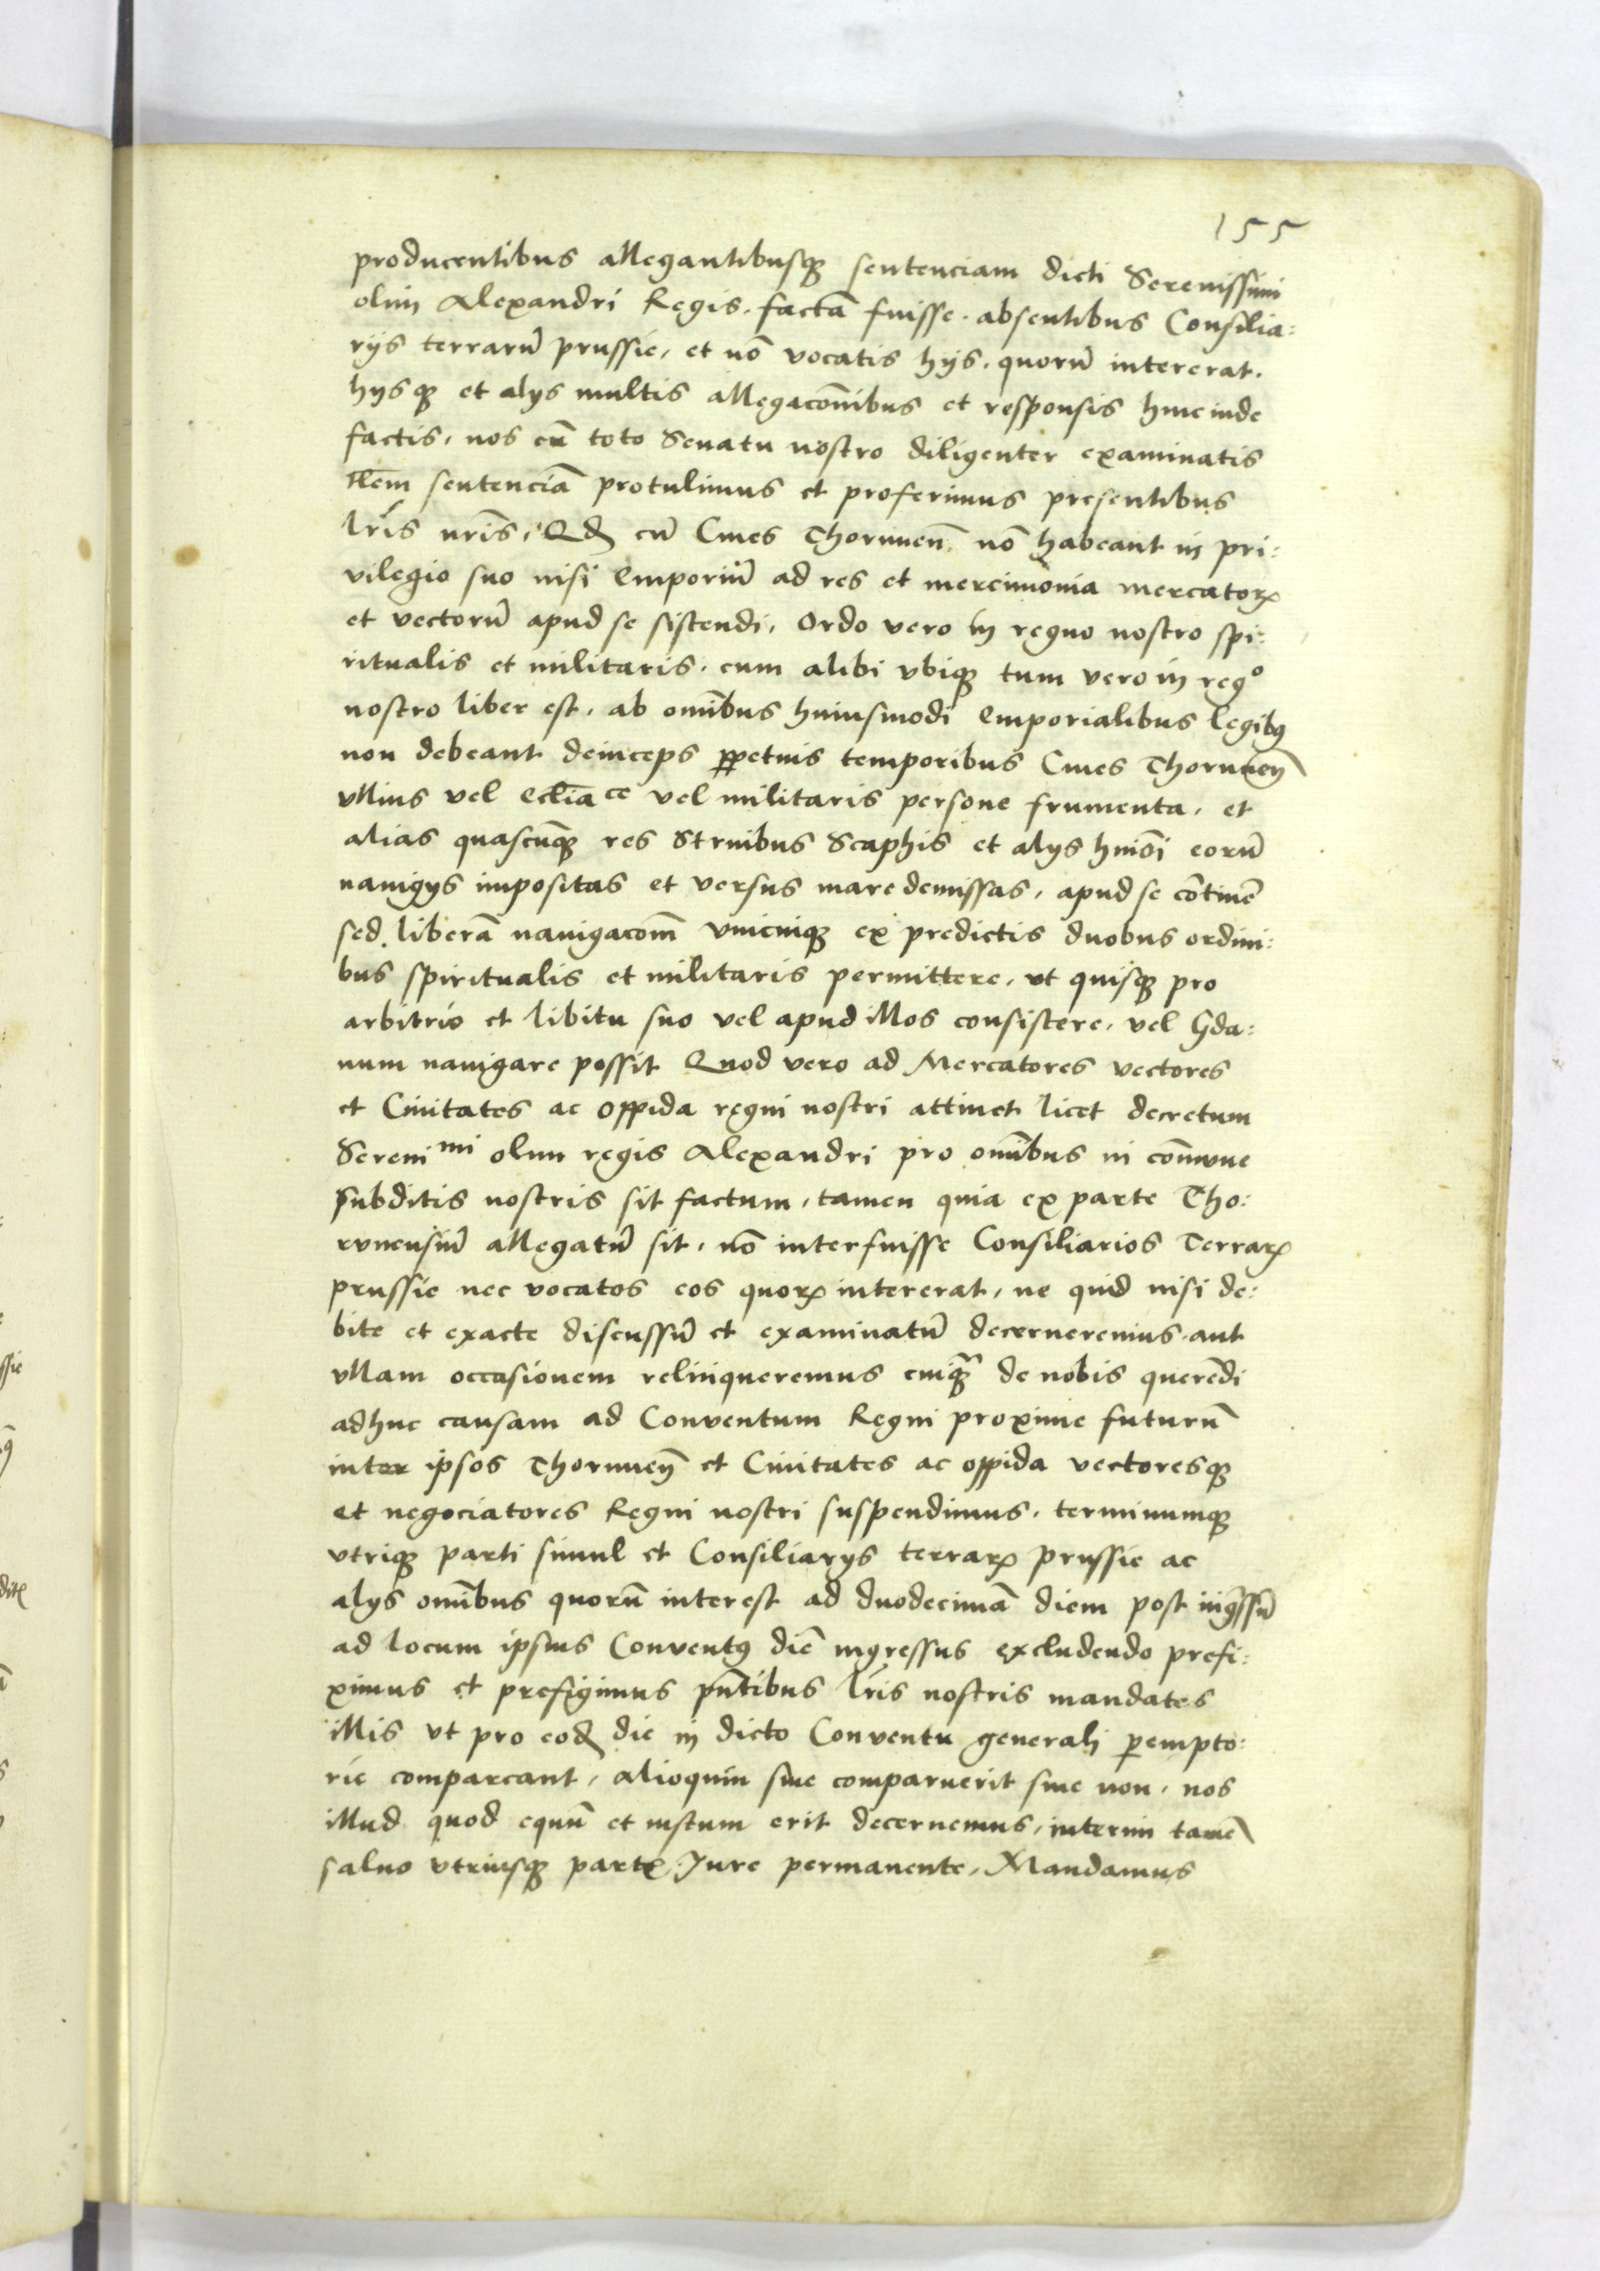 155
producentibus allegantibusq sentenciam dicti Serenissimi
olim Alexandri Regis. factā fuisse. absentibus Consilia:
rijs terrarū prussie, et nō vocatis hijs. quorū intererat.
hijsq et alijs multis allegacoībus et responsis hincinde
factis, nos cū toto Senatu nostro diligenter examinatis
sentenciā protulimus et proferimus presentibus
lrīs nrīs, Qd cū Ciues Thorunen. nō habeant in pri:
vilegio suo nisi Emporiū ad res et mercimonia mercatorꝝ
et vectorū apud se sistendi, Ordo vero in regno nostro spi:
ritualis et militaris. cum alibi vbiq tum vero in regº
nostro liber est, ab omībus huiusmodi Emporialibus legibꝰ
non debeant deinceps ꝑpetuis temporibus Ciues Thorunen
vllius vel ecliāce vel militaris persone frumenta, et
alias quascūq res Struibus Scaphis et alijs hmōi eorū
nauigijs impositas et versus mare demissas, apud se cōtinē
sed liberā nauigacoēm vnicuiq ex predictis duobus ordini:
bus spiritualis et militaris permittere, vt quisq pro
arbitrio et libitu suo vel apud illos consistere, vel Gda:
num nauigare possit Quod vero ad Mercatores vectores
et Ciuitates ac Oppida regni nostri attinet licet decretum
Serenimi olim regis Alexandri pro omībus in cōmune
subditis nostris sit factum, tamen quia ex parte Tho:
runensiū allegatū sit, nō interfuisse Consiliarios Terrarꝝ
prussie nec vocatos eos quorꝝ intererat, ne quid nisi de:
bite et exacte discussū et examinatū decerneremus. aut
vllam occasionem relinqueremus cuiqꝫ de nobis querēdi
adhuc causam ad Conventum Regni proxime futurū
inter ipsos Thorunen et Ciuitates ac oppida vectoresq
et negociatores Regni nostri suspendimus, terminumq
vtriq parti simul et Consiliarijs terrarꝝ prussie ac
alijs omībus quorū interest ad duodecimā diem post ingressū
ad locum ipsius Conventꝰ diē ingressus excludendo prefi:
ximus et prefigimus pntibus lrīs nostris mandates
illis vt pro eod die in dicto Conventu generali perempto:
rie compareant, alioquin siue comparuerit siue non, nos
illud quod equū et iustum erit decernemus, interim tamē
saluo vtriusq partꝭ Jure permanente, Mandamus